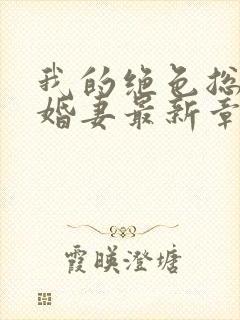 我的绝色总
婚妻最新章
霞映澄塘